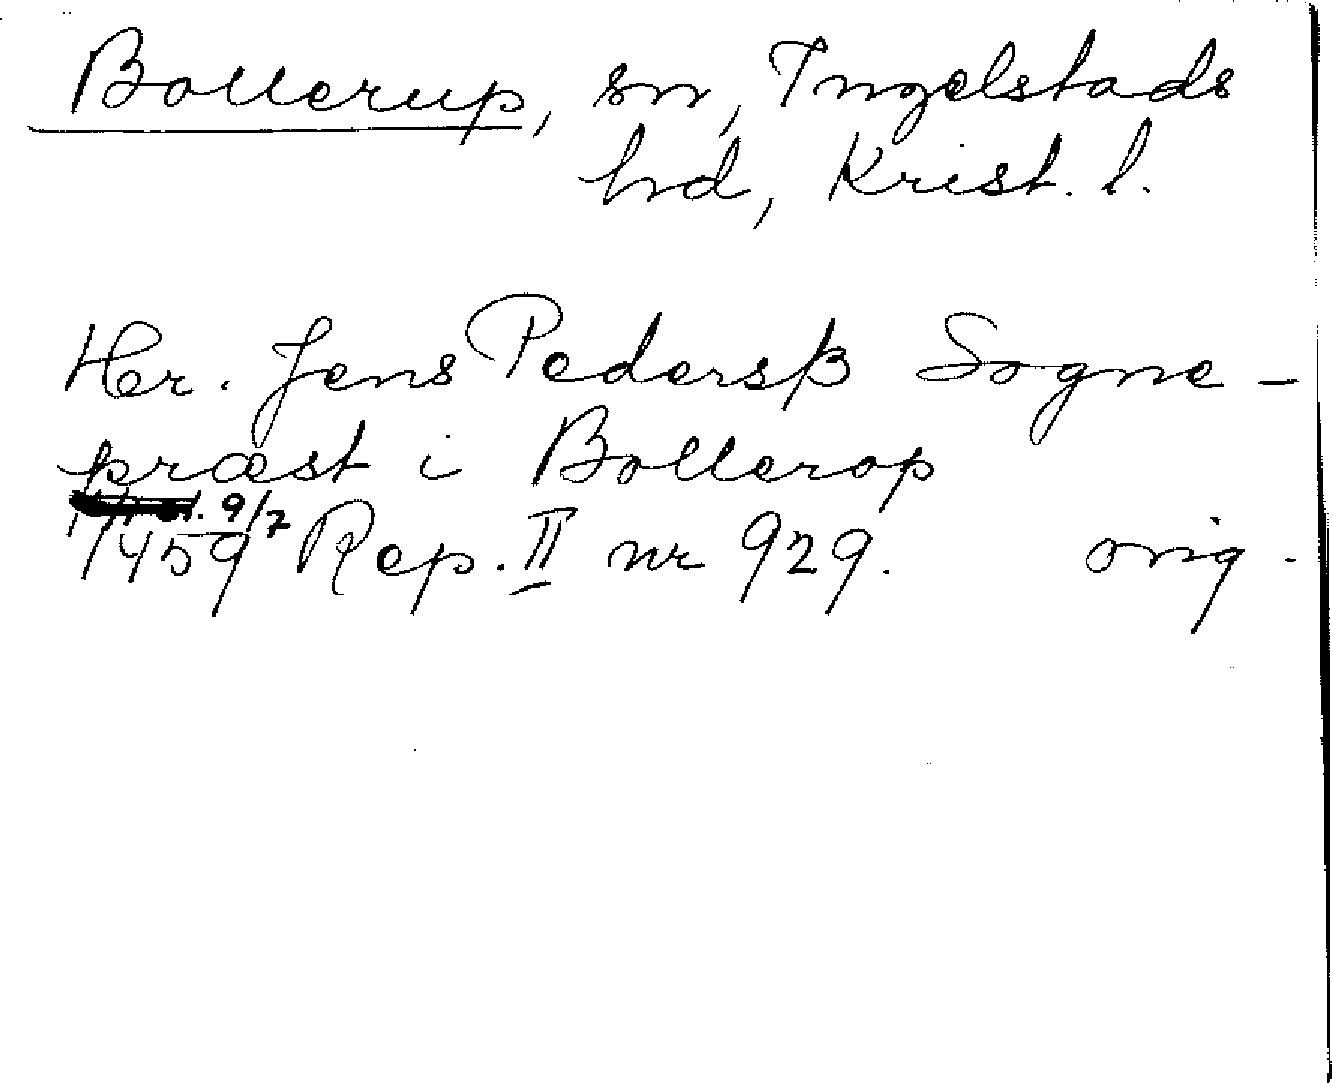 Bollerup, sn, Ingelstads
hd, Krist. l.
Her. Jens Pedersß Sogne-
præst i Bollerop
9/7
1459 Rep. II nr 929. orig.